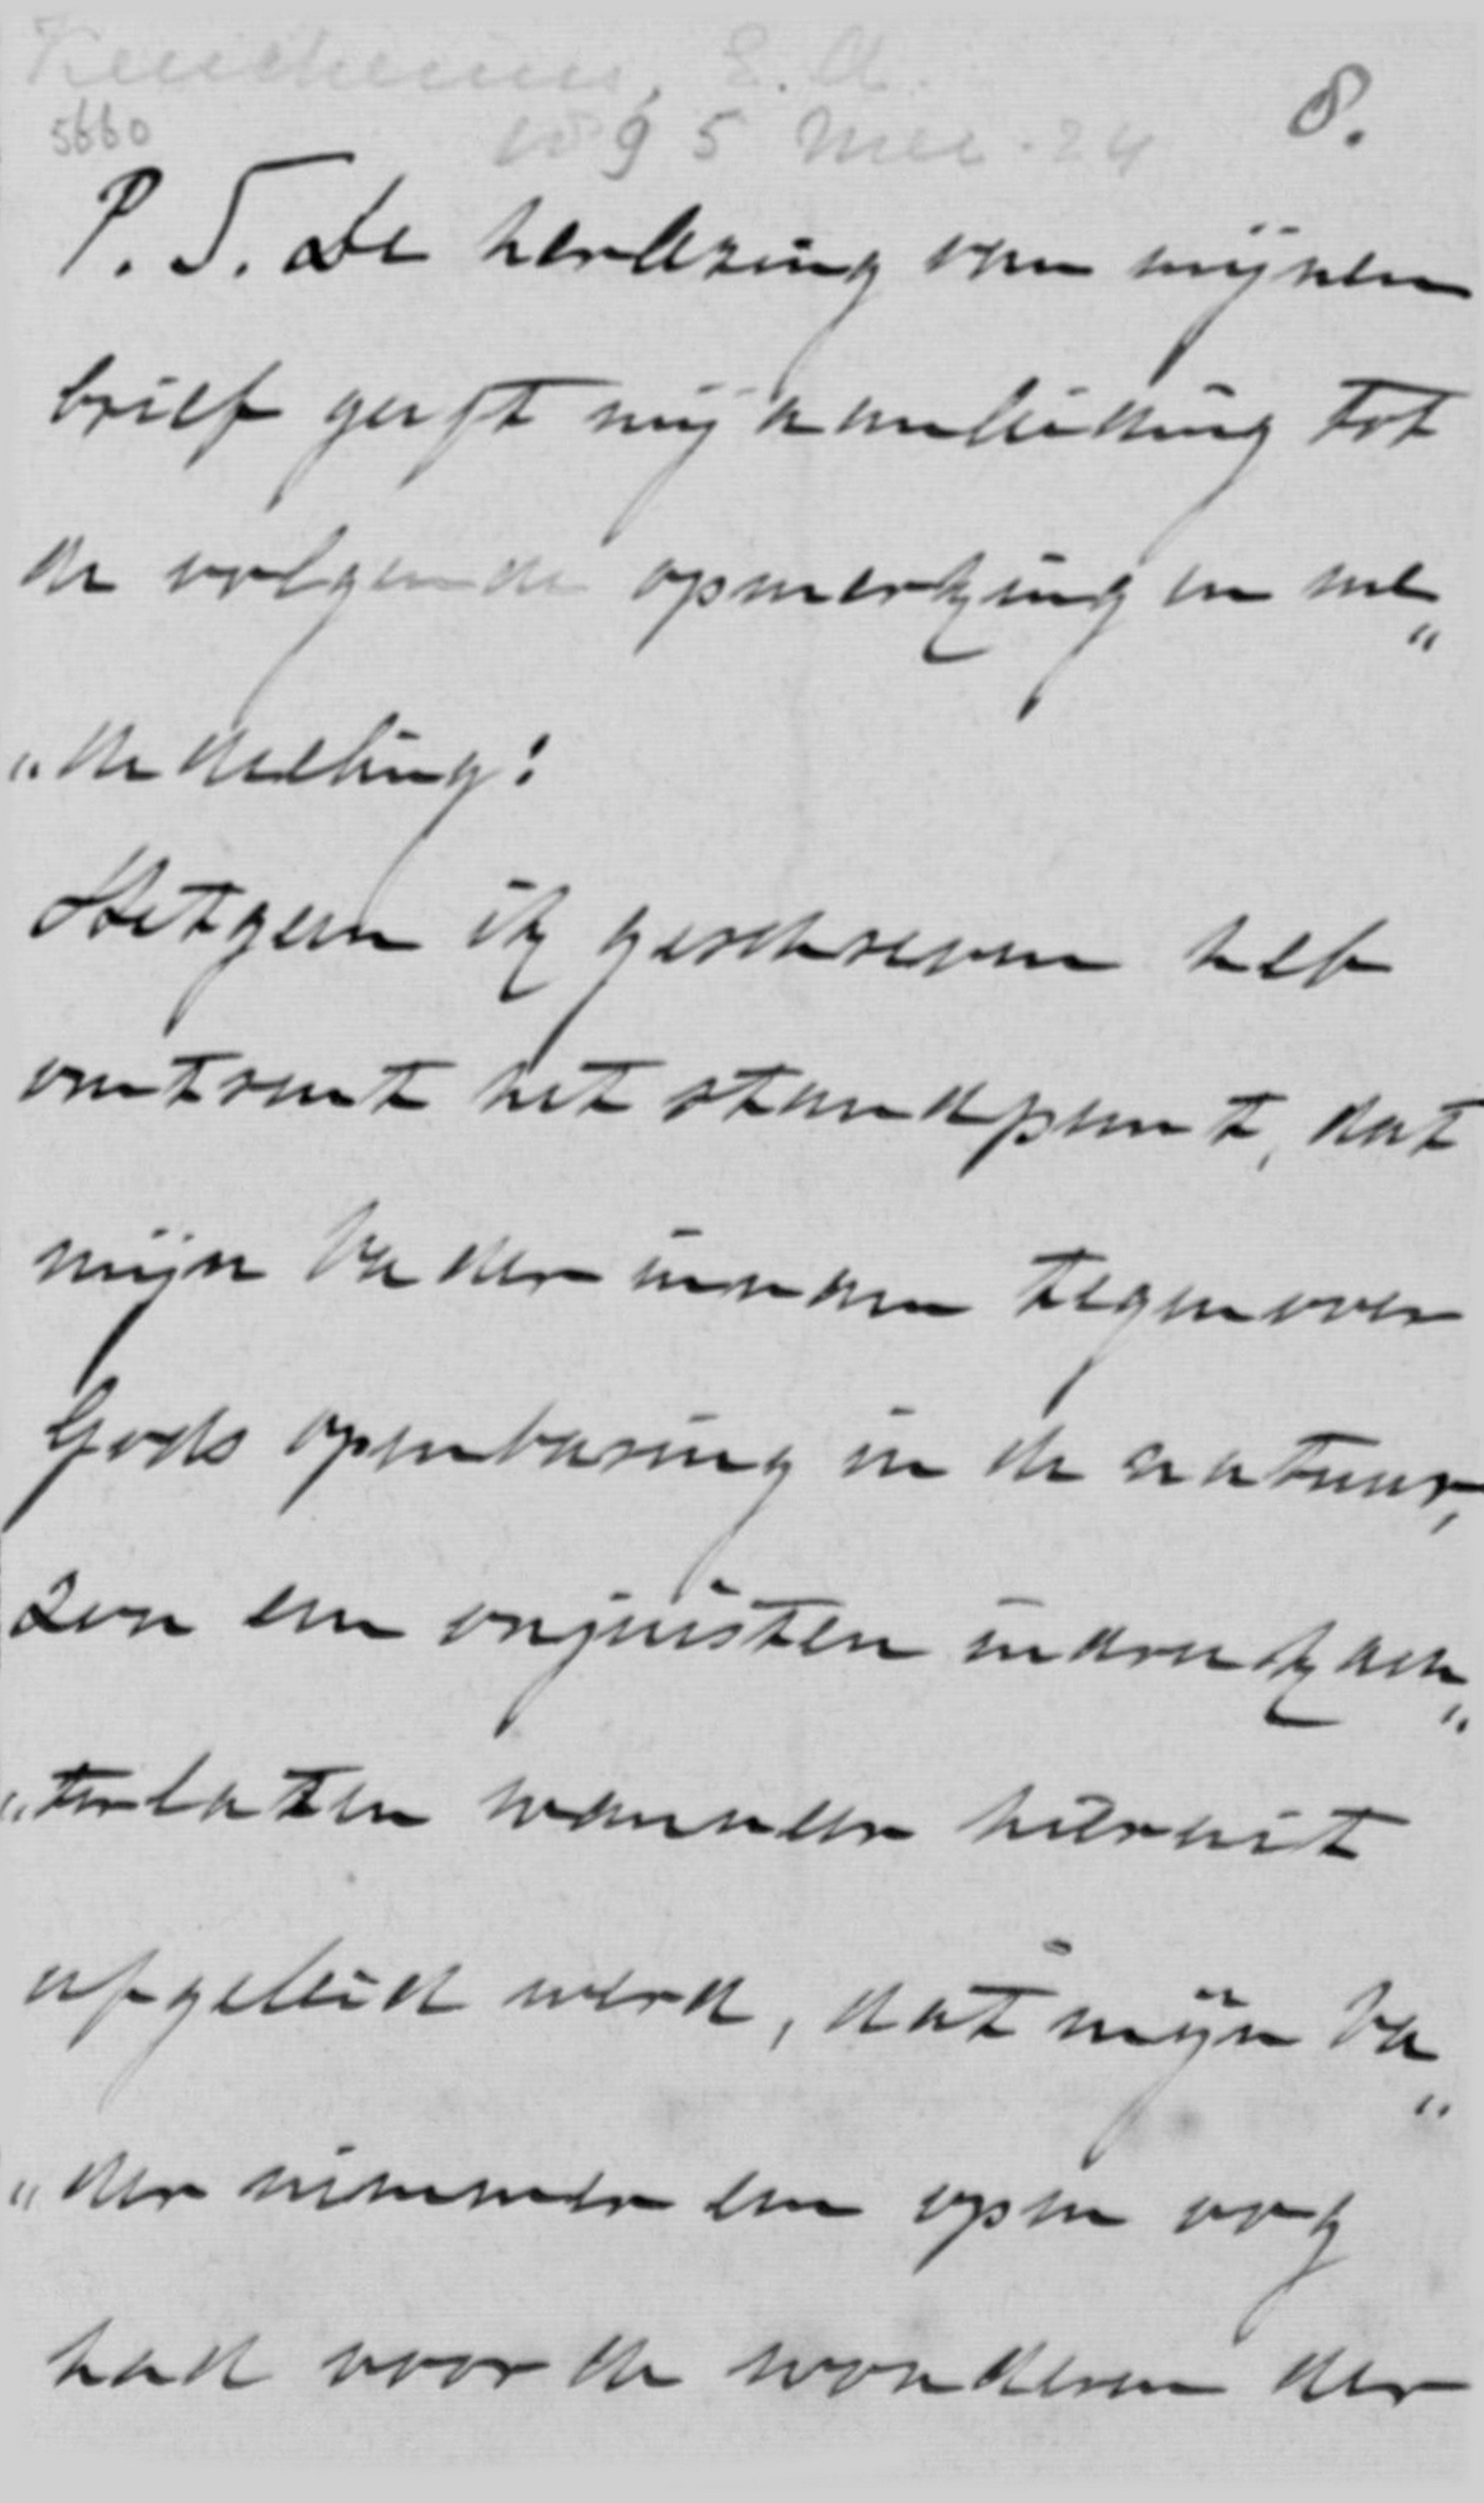 Keuchenius, L.W.C.
5660
8.
P.S. De herlezing van mijnen
brief geeft mij aanleiding tot
de volgende opmerking en me„
„dedeeling:
Hetgeen ik geschreven heb
omtrent het standpunt, dat
mijn Vader innam tegenover
Gods openbaring in de natuur,
zou een onjuisten indruk ach„
„terlaten wanneer hieruit
afgeleid werd, dat mijn Va„
„der nimmer een open oog
had voor de wonderen der